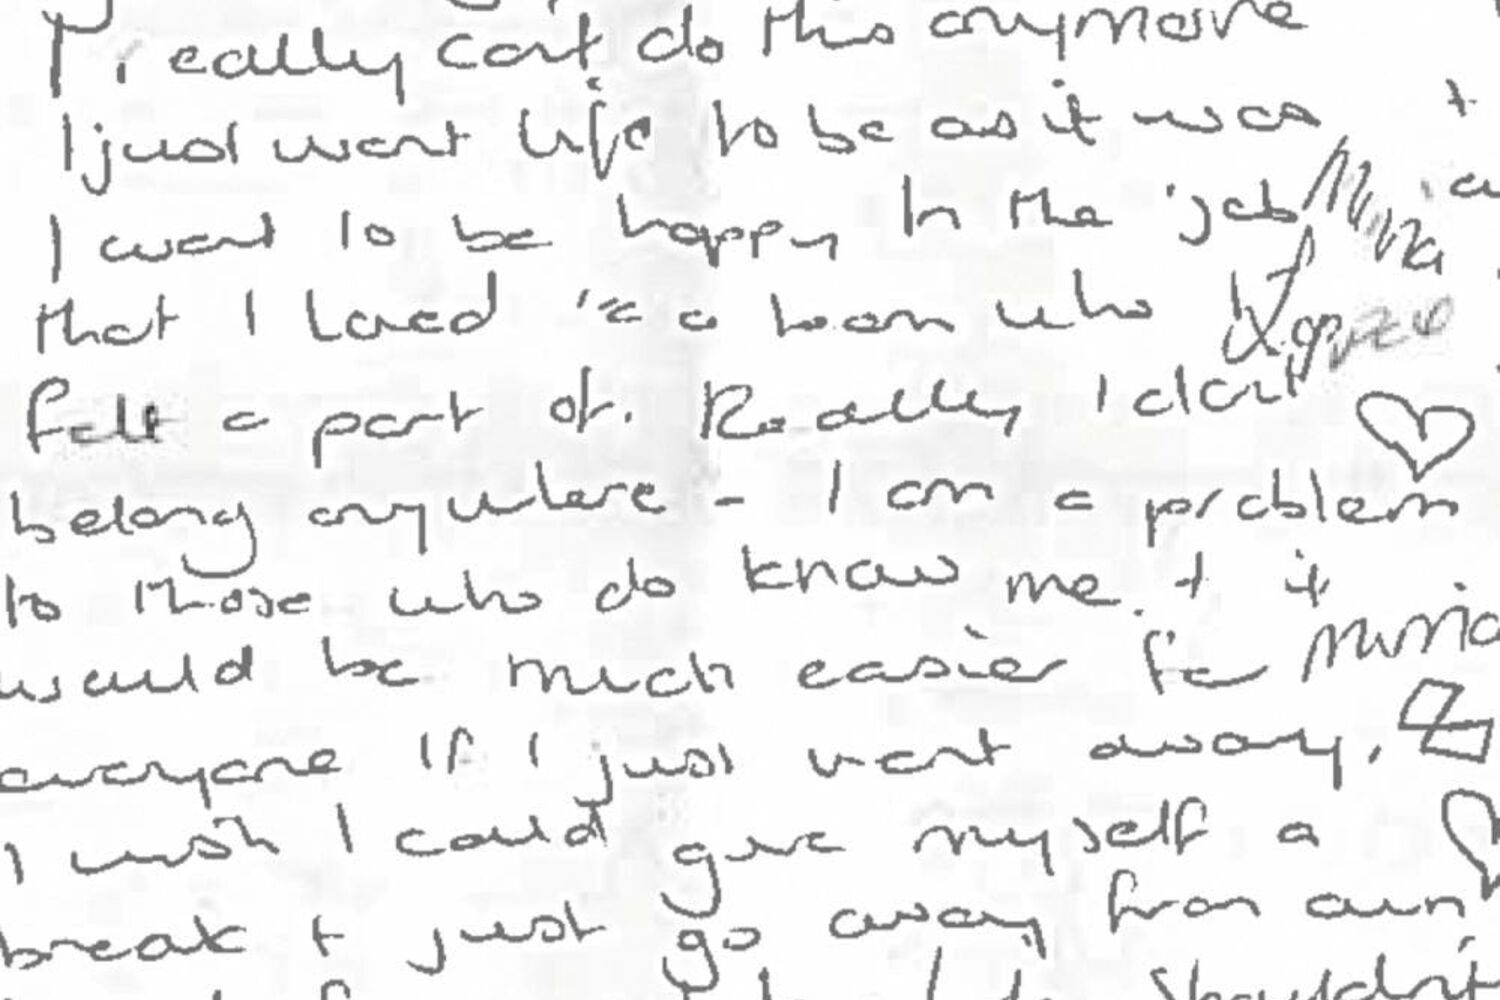 really cant do this anymore
I just want life to be as it was +
I want to be happy In the job
that I loved a town who I
felt a part of. Really I dont
belong anywhere - I am a problem
to those who do know me. + it
would be much easier for
everyone If I just went away.
I wish I could give myself a
break + just go away from
shouldn't